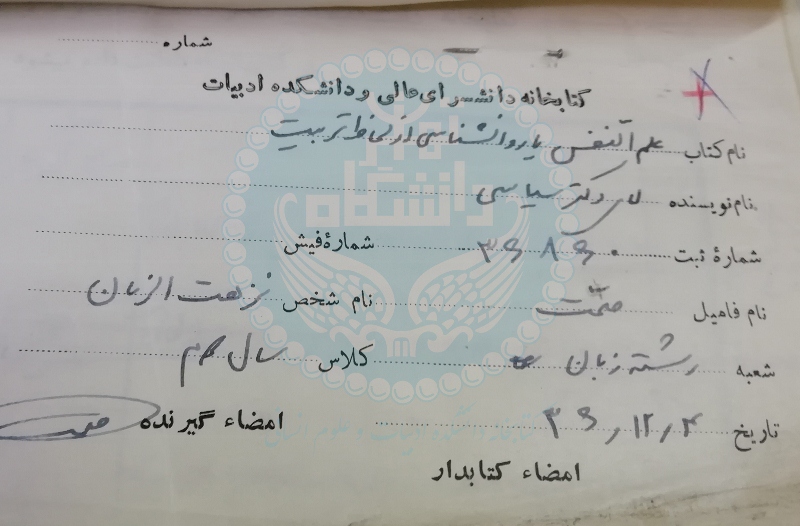 شماره
کتابخانه دانشسرای عالی و دانشکده ادبیات
نام کتاب علم النفس یا روانشناسی از لحاظ تربیت
نام نویسنده دکتر سیاسی
شمارهٔ ثبت شمارهٔ فیش
نام فامیل نام شخص نزهت الزمان
شعبه رشته زبان کلاس سال
تاریخ ۳۶٫۱۲٫۴ امضاء گیرنده
امضاء کتابدار